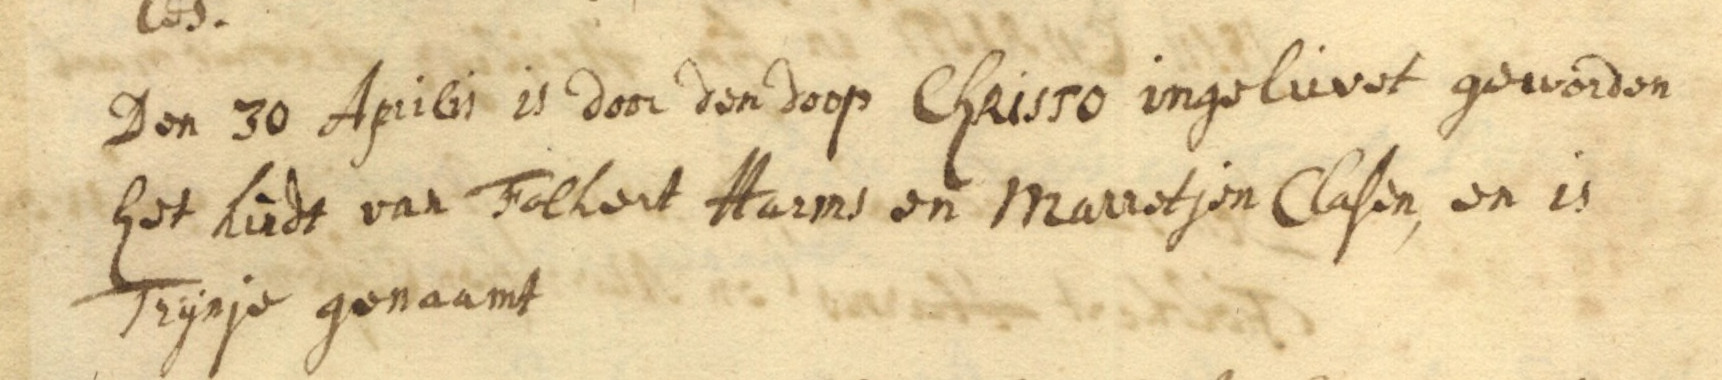 Den 30 Aprilis is door den doop Christo ingelivet geworden
het kindt van Folkert Harms en Marretjen Clasen, en is
Trijnje genaamt